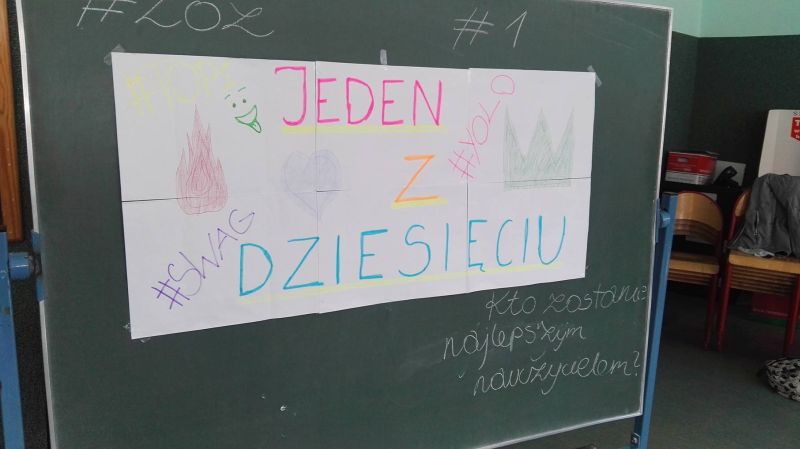 #LOL
#1
JEDEN
#YOLO
Z
#SWAG
DZIESIĘCIU
Kto zostanie
najlepszym
nauczycielem?